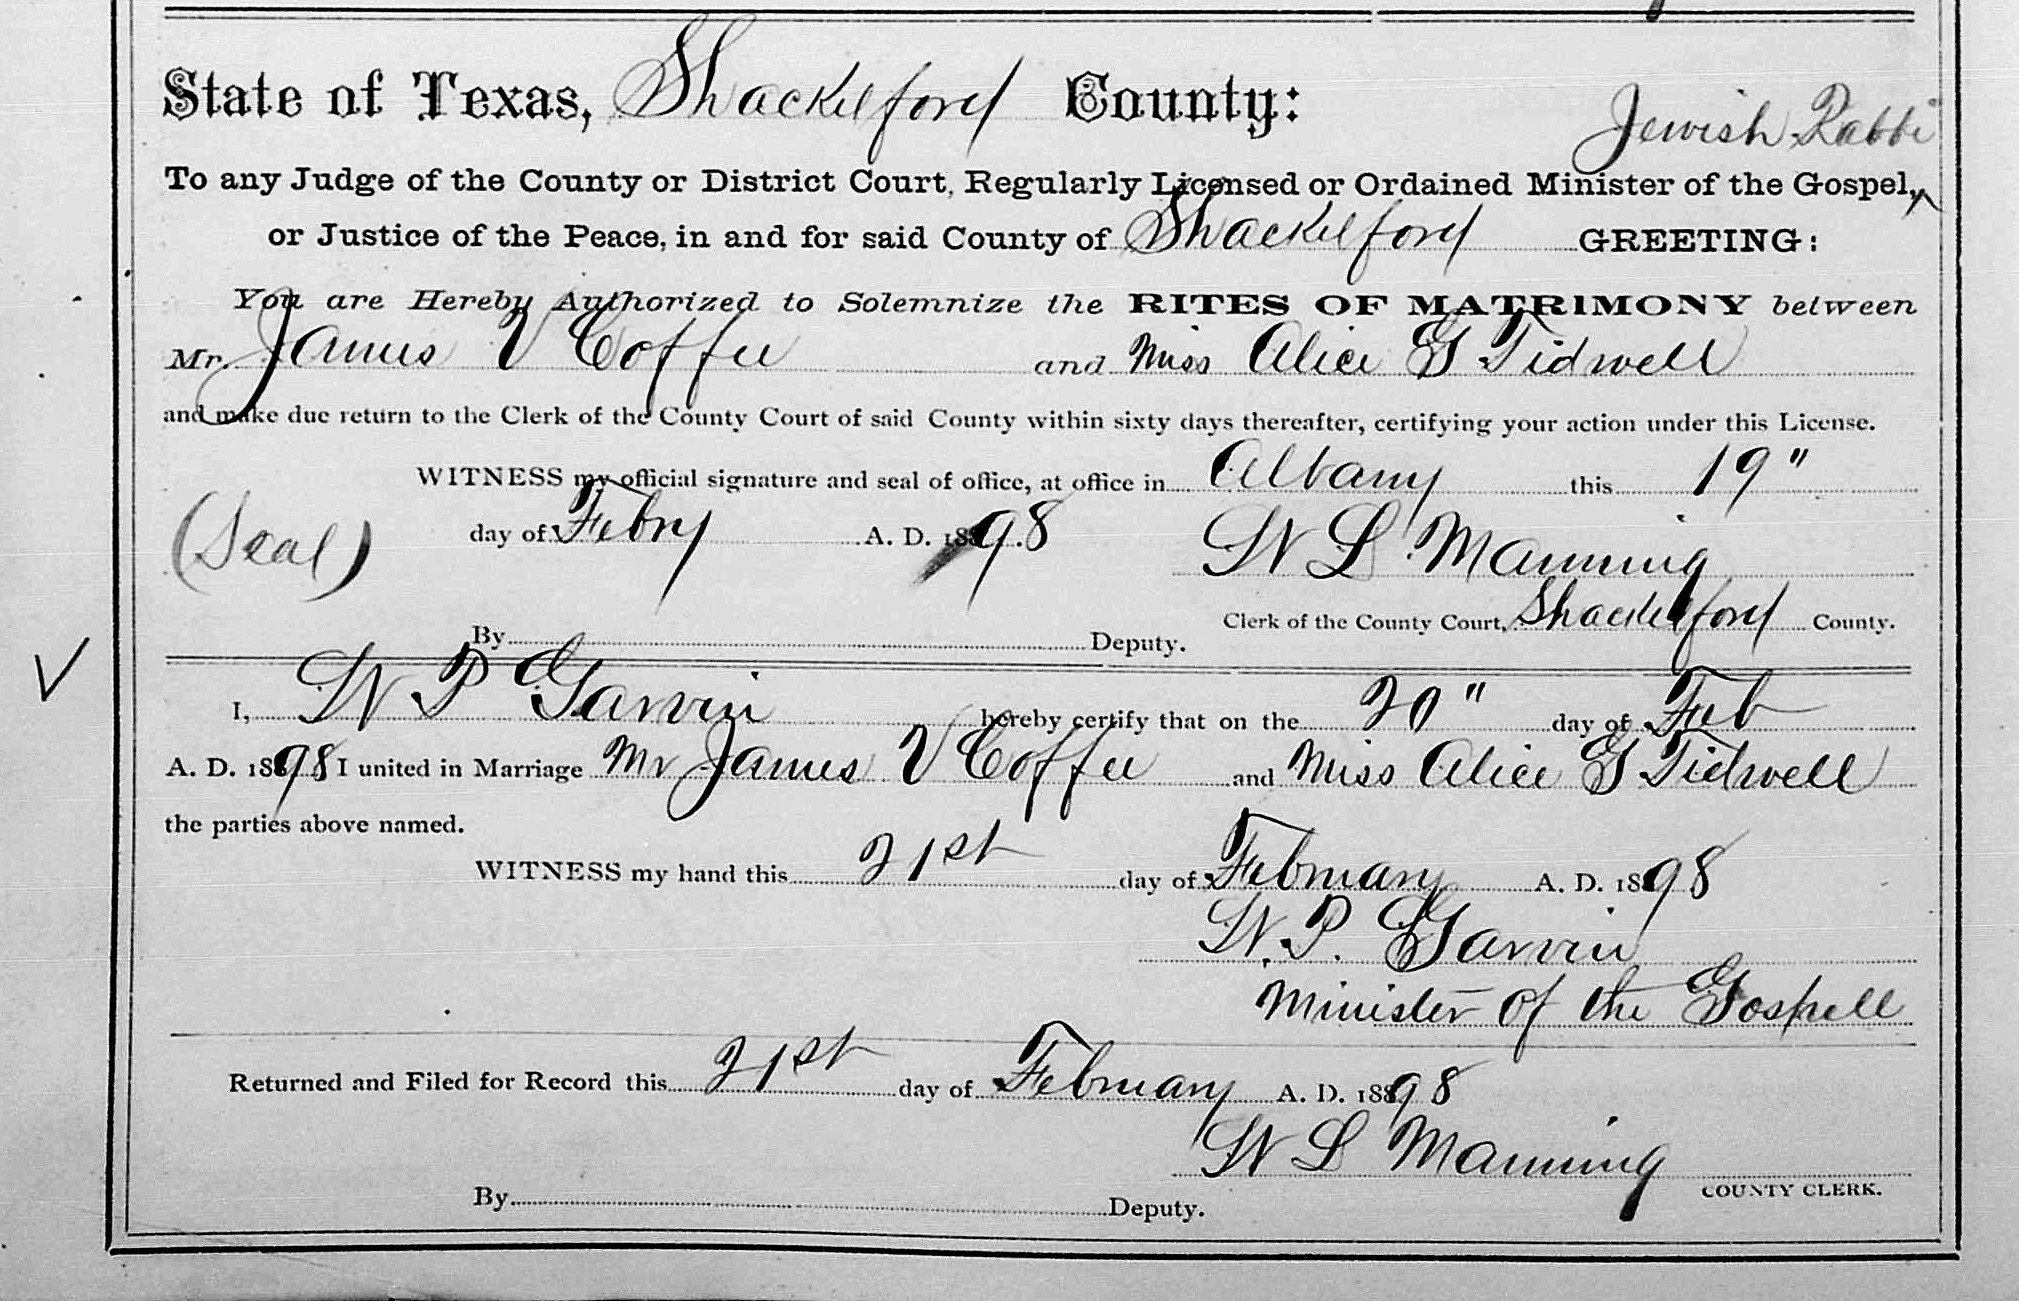 State of Texas, Shackelford County:
Jewish Rabbi
To any Judge of the County or District Court, Regularly Licensed or Ordained Minister of the Gospel, ^
or Justice of the Peace, in and for said County of Shackelford GREETING:
You are Hereby Authorized to Solemnize the RITES OF MATRIMONY between
Mr. James V Coffee and Miss Alice G Tidwell
and make due return to the Clerk of the County Court of said County within sixty days thereafter, certifying your action under this License.
WITNESS my official signature and seal of office, at office in Albany this 19"
(Seal) day of Febry A. D. 1898 W L Manning
Clerk of the County Court, Shackelford County.
By Deputy.
I, W P Garvin hereby certify that on the 20" day of Feb
A. D. 1898 I united in Marriage Mr James V Coffee and Miss Alice G Tidwell
the parties above named.
WITNESS my hand this 21st day of February A. D. 1898
W. P. Garvin
Minister of the Gospell
Returned and Filed for Record this 21st day of February A. D. 1898
W L Manning
COUNTY CLERK.
By Deputy.